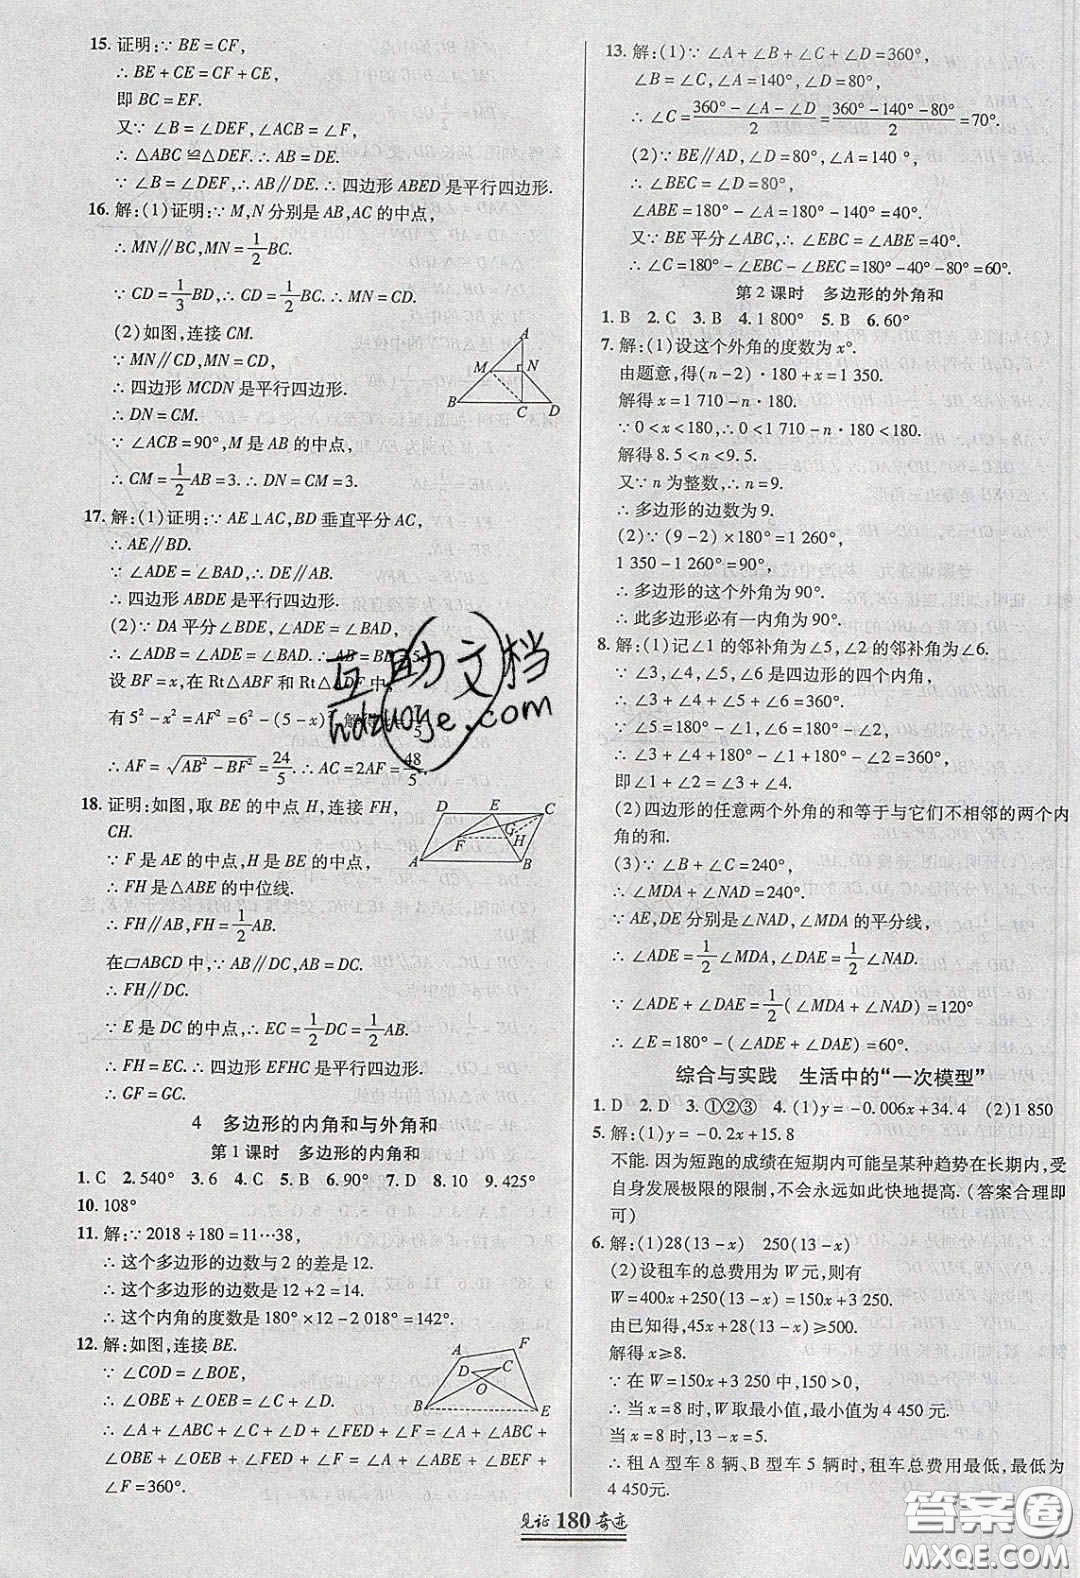 15. 证明:∵ BE = CF,
∴ BE + CE = CF + CE,
即 BC = EF.
又∵ ∠B = ∠DEF, ∠ACB = ∠F,
∴ △ABC ≌ △DEF. ∴ AB = DE.
∵ ∠B = ∠DEF, ∴ AB∥DE. ∴ 四边形 ABED 是平行四边形.
16. 解:(1)证明:∵ M,N 分别是 AB,AC 的中点,
∴ MN∥BC, MN = 1/2 BC.
∵ CD = 1/3 BD, ∴ CD = 1/2 BC. ∴ MN = CD.
(2)如图,连接 CM.
∵ MN∥CD, MN = CD,
∴ 四边形 MCDN 是平行四边形.
∴ DN = CM.
∵ ∠ACB = 90°, M 是 AB 的中点,
∴ CM = 1/2 AB = 3. ∴ DN = CM = 3.
A
M N
B C D
17. 解:(1)证明:∵ AE⊥AC, BD 垂直平分 AC,
∴ AE∥BD.
∵ ∠ADE = ∠BAD, ∴ DE∥AB.
∴ 四边形 ABDE 是平行四边形.
(2)∵ DA 平分∠BDE, ∴ ∠ADE = ∠ADB.
∴ ∠ADB = ∠BAD. ∴ AB = BD = 5.
设 BF = x, 在 Rt△ABF 和 Rt△ADF 中,
有 5² - x² = AF² = 6² - (5 - x)². 解得
∴ AF = √(AB² - BF²) = 24/5. ∴ AC = 2AF = 48/5.
18. 证明:如图,取 BE 的中点 H,连接 FH,
CH.
∵ F 是 AE 的中点, H 是 BE 的中点,
∴ FH 是△ABE 的中位线.
∴ FH∥AB, FH = 1/2 AB.
在▱ABCD 中, AB∥DC, AB = DC.
∴ FH∥DC.
∵ E 是 DC 的中点, ∴ EC = 1/2 DC = 1/2 AB.
∴ FH = EC. ∴ 四边形 EFHC 是平行四边形.
∴ GF = GC.
D E C
F G H
A B
4 多边形的内角和与外角和
第 1 课时 多边形的内角和
1. C 2. 540° 3. 6 4. C 5. B 6. 90° 7. D 8. 10 9. 425°
10. 108°
11. 解:∵ 2018 ÷ 180 = 11…38,
∴ 这个多边形的边数与 2 的差是 12.
∴ 这个多边形的边数是 12 + 2 = 14.
∴ 这个内角的度数是 180° × 12 - 2 018° = 142°.
12. 解:如图,连接 BE.
∵ ∠COD = ∠BOE,
∴ ∠OBE + ∠OEB = ∠C + ∠D.
∴ ∠A + ∠ABC + ∠C + ∠D + ∠DEF + ∠F = ∠A + ∠ABC +
∠OBE + ∠OEB + ∠FED + ∠F = ∠A + ∠ABE + ∠BEF +
∠F = 360°.
A F
D C
O
B E
13. 解:(1)∵ ∠A + ∠B + ∠C + ∠D = 360°,
∠B = ∠C, ∠A = 140°, ∠D = 80°,
∴ ∠C = (360° - ∠A - ∠D)/2 = (360° - 140° - 80°)/2 = 70°.
(2)∵ BE∥AD, ∠A = 140 °,
∴ ∠BEC = ∠D = 80°,
∠ABE = 180° - ∠A = 180° - 140° = 40°.
又∵ BE 平分∠ABC, ∴ ∠EBC = ∠ABE = 40°.
∴ ∠C = 180° - ∠EBC - ∠BEC = 180° - 40° - 80° = 60°.
第 2 课时 多边形的外角和
1. B 2. C 3. B 4. 1 800° 5. B 6. 60°
7. 解:(1)设这个外角的度数为 x°.
由题意,得(n - 2)·180 + x = 1 350.
解得 x = 1 710 - n·180.
∵ 0 < x < 180, ∴ 0 < 1 710 - n·180 < 180.
解得 8.5 < n < 9.5.
又∵ n 为整数, ∴ n = 9.
∴ 多边形的边数为 9.
(2)∵ (9 - 2) × 180° = 1 260°,
1 350° - 1 260° = 90°,
∴ 多边形的这个外角为 90°.
∴ 此多边形必有一内角为 90°.
8. 解:(1)记∠1 的邻补角为∠5, ∠2 的邻补角为∠6.
∵ ∠3, ∠4, ∠5, ∠6 是四边形的四个内角,
∴ ∠3 + ∠4 + ∠5 + ∠6 = 360°.
∵ ∠5 = 180° - ∠1, ∠6 = 180° - ∠2,
∴ ∠3 + ∠4 + 180° - ∠1 + 180° - ∠2 = 360°.
即∠1 + ∠2 = ∠3 + ∠4.
(2)四边形的任意两个外角的和等于与它们不相邻的两个内
角的和.
(3)∵ ∠B + ∠C = 240°,
∴ ∠MDA + ∠NAD = 240°.
∵ AE, DE 分别是∠NAD, ∠MDA 的平分线,
∴ ∠ADE = 1/2 ∠MDA, ∠DAE = 1/2 ∠NAD.
∴ ∠ADE + ∠DAE = 1/2 (∠MDA + ∠NAD) = 120°
∴ ∠E = 180° - (∠ADE + ∠DAE) = 60°.
综合与实践 生活中的“一次模型”
1. D 2. D 3. ①②③ 4. (1)y = -0.006x + 34.4 (2)1 850
5. 解:(1)y = -0.2x + 15.8
不能. 因为短跑的成绩在短期内可能呈某种趋势在长期内,受
自身发展极限的限制,不会永远如此快地提高. (答案合理即
可)
6. 解:(1)28(13 - x) 250(13 - x)
(2)设租车的总费用为 W 元,则有
W = 400x + 250(13 - x) = 150x + 3 250.
由已知得, 45x + 28(13 - x) ≥ 500.
解得 x ≥ 8.
∵ 在 W = 150x + 3 250 中, 150 > 0,
∴ 当 x = 8 时, W 取最小值,最小值为 4 450 元.
当 x = 8 时, 13 - x = 5.
∴ 租 A 型车 8 辆、B 型车 5 辆时,租车总费用最低,最低为
4 450元.
见证 180 奇迹
互助文档
hdzuoye.com
答案圈
MXQE.COM